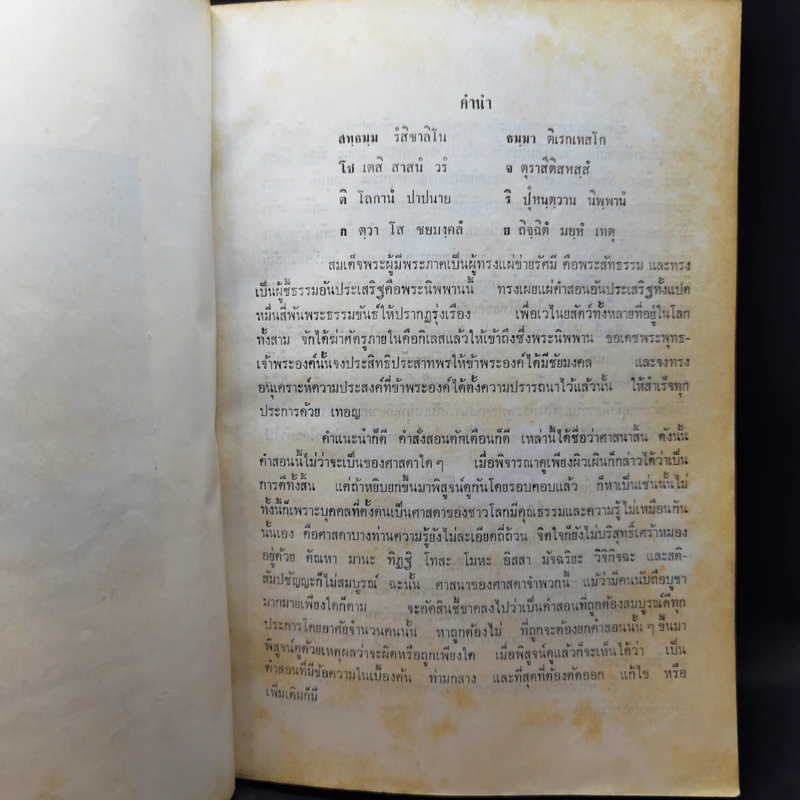 คำนำ
สทฺธมฺม รํสิชาลิโน ธมฺมา ติเรกเทสโก
โช เตสิ สาสนํ วรํ จ ตุราสีติสหสฺสํ
ติ โลกานํ ปาปนาย ริ ปุํหนฺตฺวาน นิพฺพานํ
ก ตฺวา โส ชยมงฺคลํ ย ถิจฺฉิตํ มยฺหํ เหตุ
สมเด็จพระผู้มีพระภาคเป็นผู้ทรงแผ่ข่ายรัศมี คือพระสัทธรรม และทรง
เป็นผู้ชี้ธรรมอันประเสริฐคือพระนิพพานนี้ ทรงเผยแผ่คำสอนอันประเสริฐทั้งแปด
หมื่นสี่พันพระธรรมขันธ์ให้ปรากฏรุ่งเรือง เพื่อเวไนยสัตว์ทั้งหลายที่อยู่ในโลก
ทั้งสาม จักได้ฆ่าศัตรูภายในคือกิเลสแล้วให้เข้าถึงซึ่งพระนิพพาน ขอเดชพระพุทธ-
เจ้าพระองค์นั้นจงประสิทธิประสาทพรให้ข้าพระองค์ได้มีชัยมงคล และจงทรง
อนุเคราะห์ความประสงค์ที่ข้าพระองค์ได้ตั้งความปรารถนาไว้แล้วนั้น ให้สำเร็จทุก
ประการด้วย เทอญ
คำแนะนำก็ดี คำสั่งสอนตักเตือนก็ดี เหล่านี้ได้ชื่อว่าศาสนาสิ้น ดังนั้น
คำสอนนี้ไม่ว่าจะเป็นของศาสดาใด ๆ เมื่อพิจารณาดูเพียงผิวเผินก็กล่าวได้ว่าเป็น
การดีทั้งสิ้น แต่ถ้าหยิบยกขึ้นมาพิสูจน์ดูกันโดยรอบคอบแล้ว ก็หาเป็นเช่นนั้นไม่
ทั้งนี้ก็เพราะบุคคลที่ตั้งตนเป็นศาสดาของชาวโลกมีคุณธรรมและความรู้ไม่เหมือนกัน
นั้นเอง คือศาสดาบางท่านความรู้ยังไม่ละเอียดถี่ถ้วน จิตใจก็ยังไม่บริสุทธิ์เศร้าหมอง
อยู่ด้วย ตัณหา มานะ ทิฏฐิ โทสะ โมหะ อิสสา มัจฉริยะ วิจิกิจฉะ และสติ-
สัมปชัญญะก็ไม่สมบูรณ์ ฉะนั้น ศาสนาของศาสดาจำพวกนี้ แม้ว่ามีคนนับถือบูชา
มากมายเพียงใดก็ตาม จะตัดสินชี้ขาดลงไปว่าเป็นคำสอนที่ถูกต้องสมบูรณ์ดีทุก
ประการโดยอาศัยจำนวนคนนั้น หาถูกต้องไม่ ที่ถูกจะต้องยกคำสอนนั้น ๆ ขึ้นมา
พิสูจน์ดูด้วยเหตุผลว่าจะผิดหรือถูกเพียงใด เมื่อพิสูจน์ดูแล้วก็จะเห็นได้ว่า เป็น
คำสอนที่มีข้อความในเบื้องต้น ท่ามกลาง และที่สุดที่ต้องตัดออก แก้ไข หรือ
เพิ่มเติมก็มี